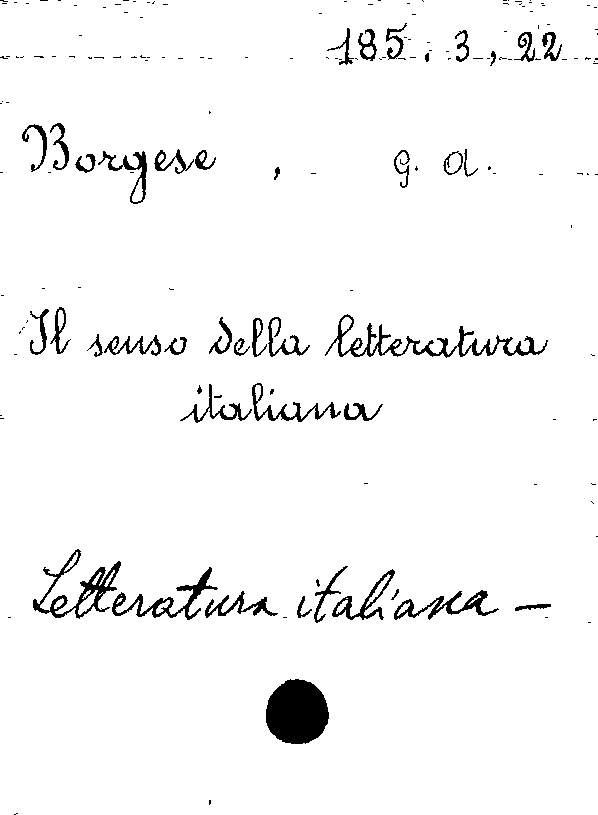 185.3,22
Borgese, G. A.
Il senso della letteratura
italiana
Letteratura italiana –